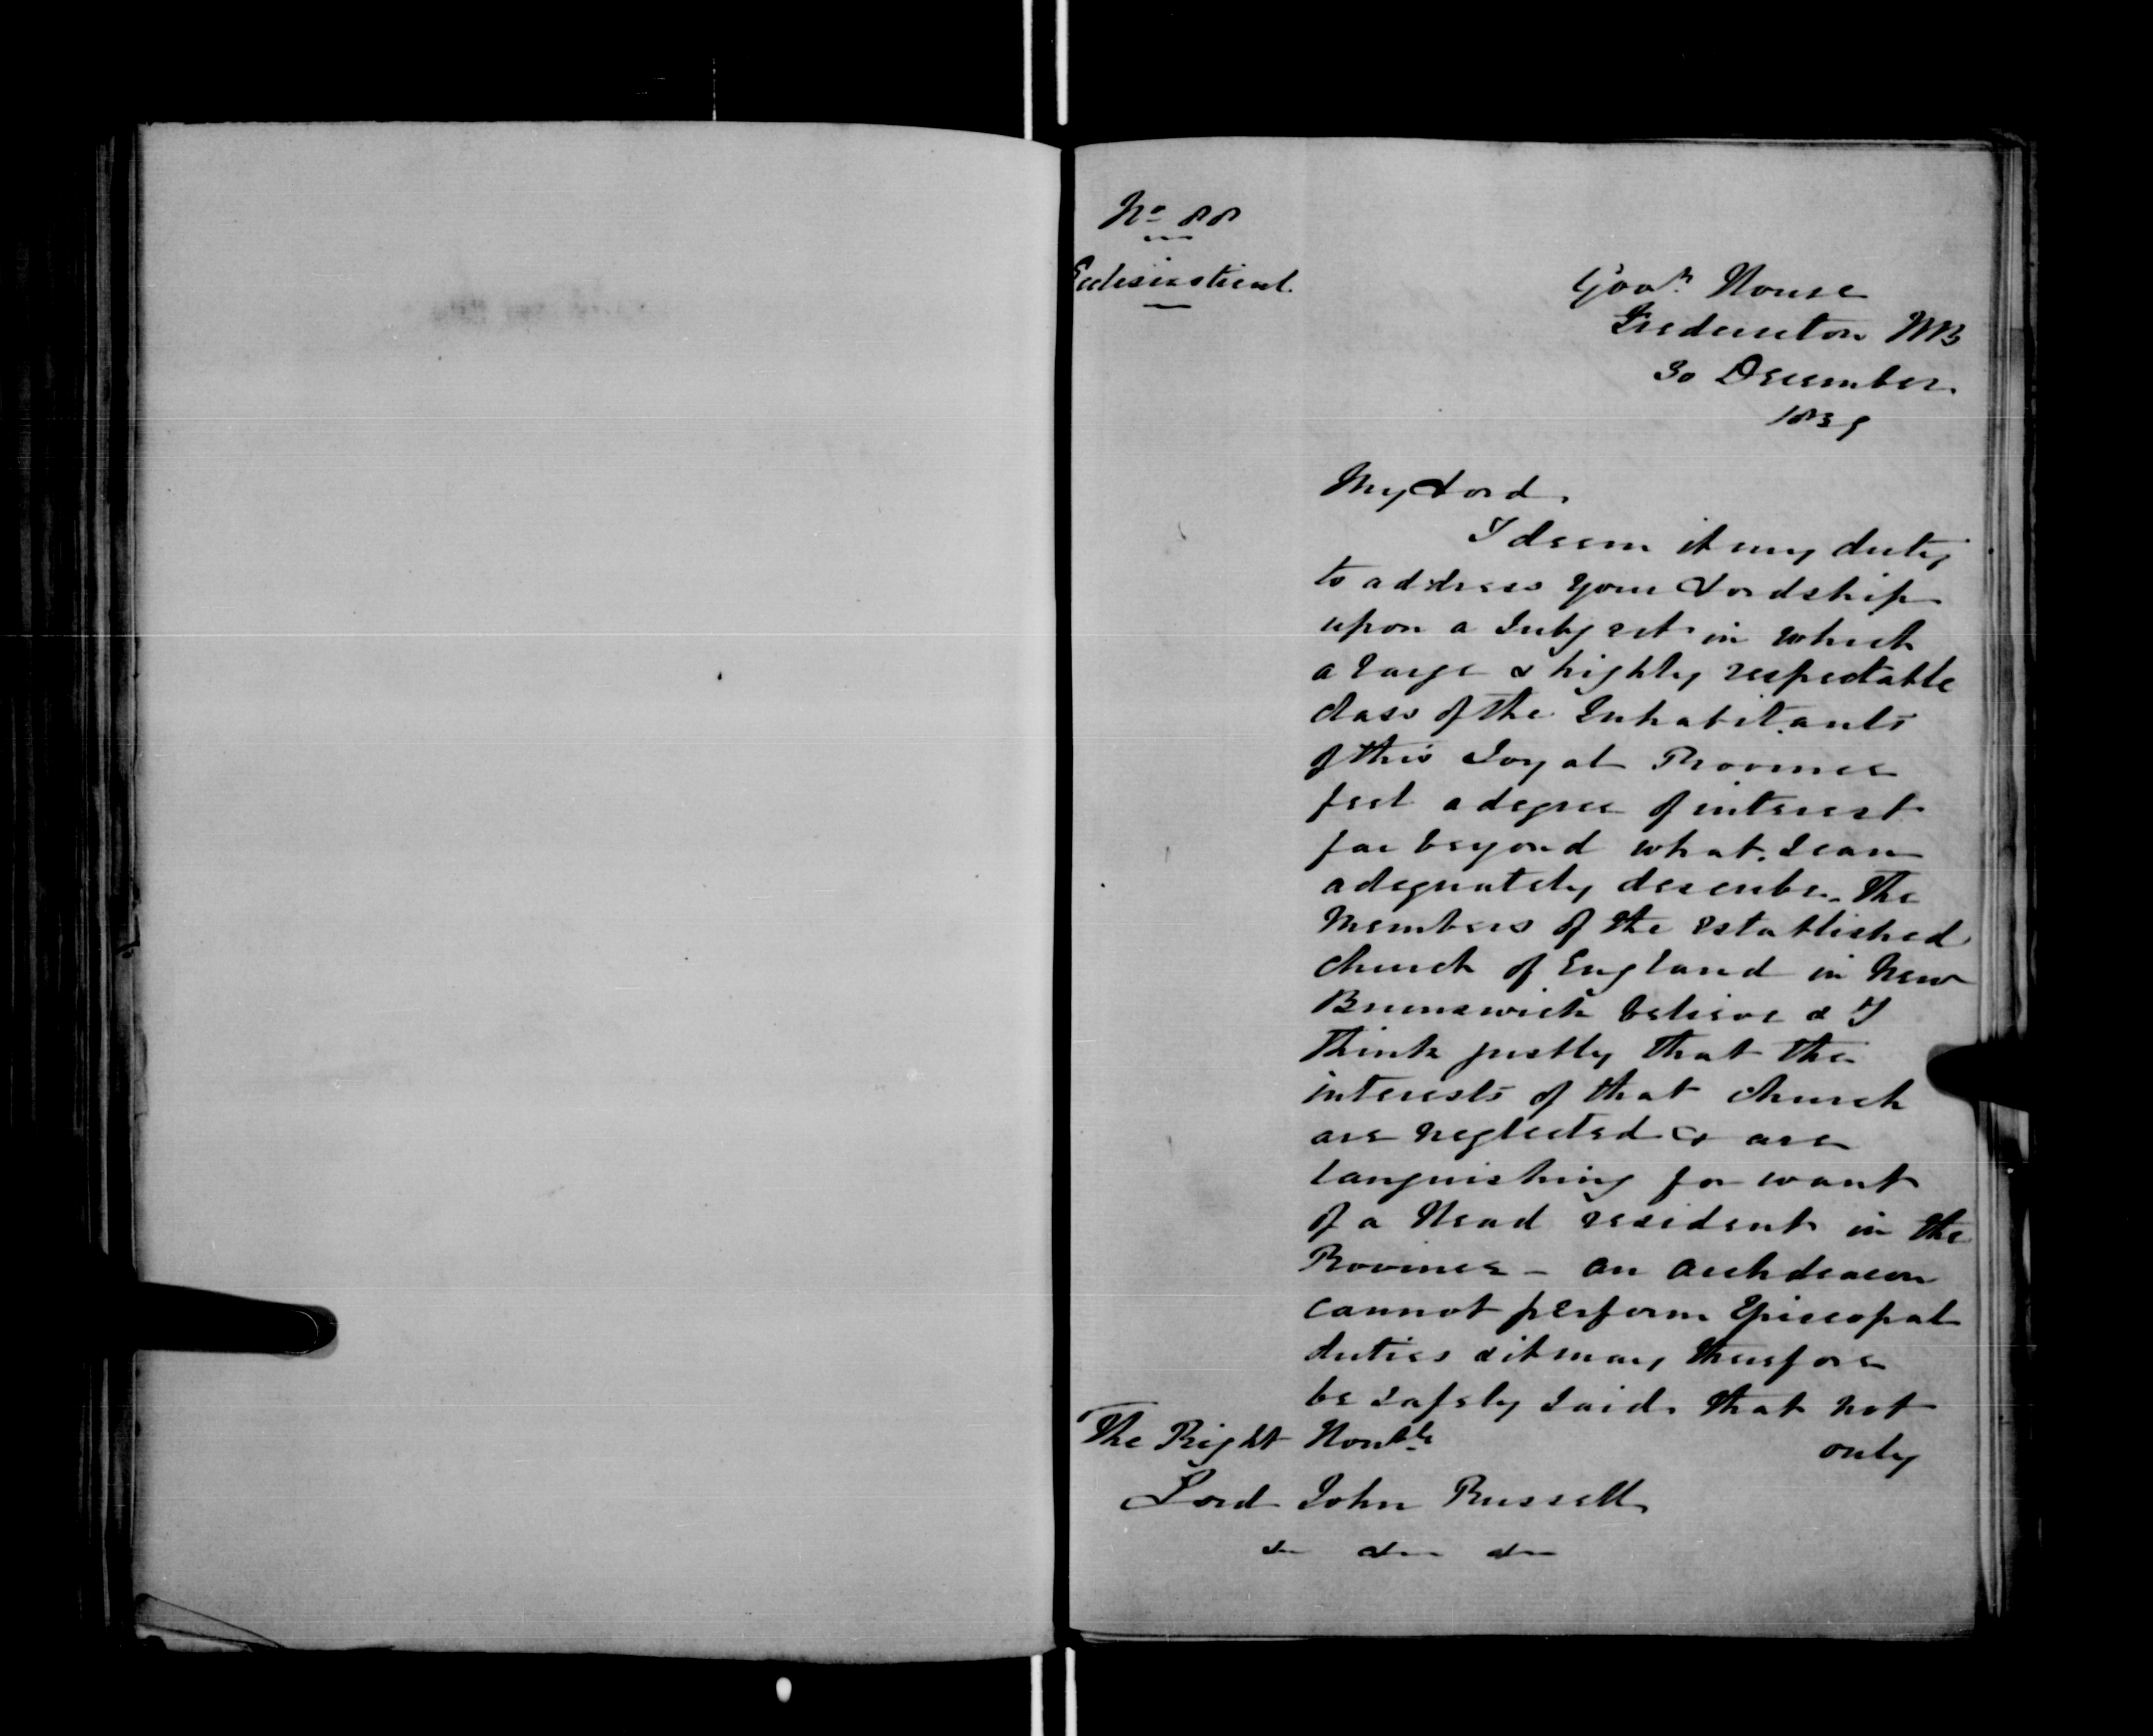 No 88
Ecclesiastical
Govt House
Fredericton NB
30 December
1839
My Lord,
I deem it my duty
to address your Lordship
upon a Subject in which
a large & highly respectable
class of the Inhabitants
of this Loyal Province
feel a degree of interest
far beyond what I can
adequately describe. The
Members of the established
Church of England in New
Brunswick believe & I
think justly that the
interests of that Church
are neglected & are
languishing for want
of a Head resident in the
Province – an Archdeacon
cannot perform Episcopal
duties & it may therefore
be safely said that not
only
The Right Honble
Lord John Russell
&c &c &c